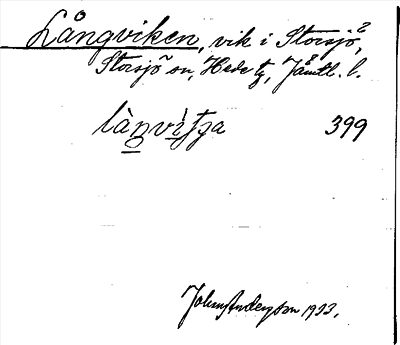 Långviken, vik i Storsjö,
Storsjö sn, Hede tg, Jämtl. l.
399
Johan Anderson 1933.